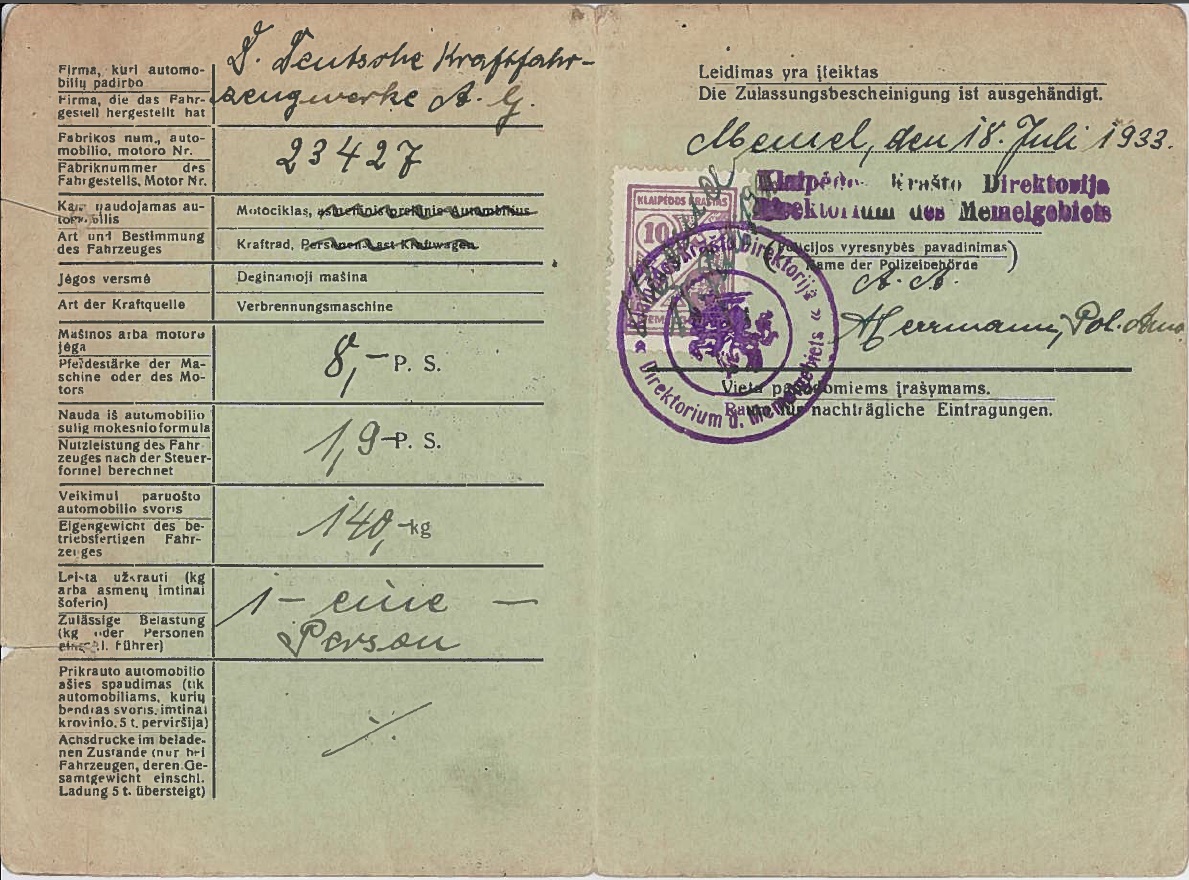 Firma, kuri automo-
bilių padirbo
Firma, die das Fahr-
gestell hergestellt hat
D. Deutsche Kraftfahr-
zeugwerke A. G.
Fabrikos num., auto-
mobilio, motoro Nr.
Fabriknummer des
Fahrgestells, Motor Nr.
23427
Kam naudojamas au-
tomobilis
Motociklas, asmeninis prekinis Automobilius
Art und Bestimmung
des Fahrzeuges
Kraftrad, Personen-Last Kraftwagen
Jėgos versmė
Deginamoji mašina
Art der Kraftquelle
Verbrennungsmaschine
Mašinos arba motoro
jėga
Pferdestärke der Ma-
schine oder des Mo-
tors
8,- P. S.
Nauda iš automobilio
sulig mokesnio formula
Nutzleistung des Fahr-
zeuges nach der Steuer-
formel berechnet
1,9 P. S.
Veikimui paruošto
automobilio svoris
Eigengewicht des be-
triebsfertigen Fahr-
zeuges
140,- kg
Leista užkrauti (kg
arba asmenų imtinai
šoferio)
Zulässige Belastung
(kg oder Personen
einschl. Führer)
1 - eine -
Person
Prikrauto automobilio
ašies spaudimas (tik
automobiliams, kurių
bendras svoris, imtinai
krovinio, 5 t. perviršija)
Achsdrucke im belade-
nen Zustande (nur bei
Fahrzeugen, deren Ge-
samtgewicht einschl.
Ladung 5 t. übersteigt)
Leidimas yra įteiktas
Die Zulassungsbescheinigung ist ausgehändigt.
Memel, den 18. Juli 1933.
Klaipėdos Krašto Direktorija
Direktorium des Memelgebiets
(Policijos vyresnybės pavadinimas
Name der Polizeibehörde)
KLAIPĖDOS KRAŠTAS
10
» Klaipėdos Krašto Direktorija «
Direktorium d. Memelgebiets
Herrmann, Pol.
Vieta paskutiniems įrašymams.
Raum für nachträgliche Eintragungen.